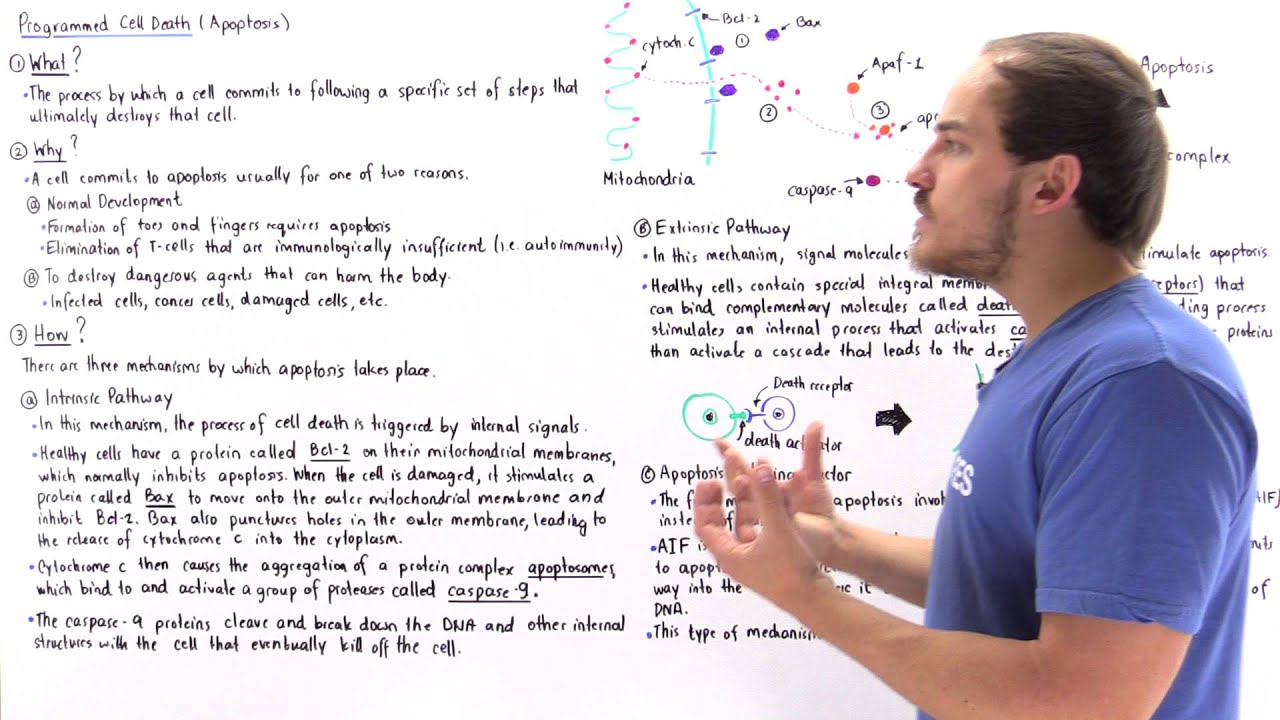 Programmed Cell Death (Apoptosis)
① What?
• The process by which a cell commits to following a specific set of steps that
ultimalely destroys that cell.
② Why?
• A cell commits to apoptosis usually for one of two reasons.
ⓐ Normal Development
• Formation of toes and fingers requires apoptosis
• Elimination of T-cells that are immunologically insufficient (i.e. autoimmunity)
Ⓑ To destroy dangerous agents that can harm the body.
• Infected cells, cancer cells, damaged cells, etc.
③ How?
There are three mechanisms by which apoptosis takes place.
ⓐ Intrinsic Pathway
• In this mechanism, the process of cell death is triggered by internal signals.
• Healthy cells have a protein called Bcl-2 on their mitochondrial membranes,
which normally inhibits apoptosis. When the cell is damaged, it stimulates a
protein called Bax to move onto the outer mitochondrial membrane and
inhibit Bcl-2. Bax also punctures holes in the outer membrane, leading to
the release of cytochrome c into the cytoplasm.
• Cytochrome c then causes the aggregation of a protein complex apoptosomes,
which bind to and activate a group of proteases called caspase-9.
• The caspase-9 proteins cleave and break down the DNA and other internal
structures with the cell that eventually kill off the cell.
Bcl-2
Bax
cytoch. c
①
Apaf-1
Apoptosis
②
③
apo
complex
caspase-9
Mitochondria
Ⓑ Extrinsic Pathway
• In this mechanism, signal molecules timulate apoptosis.
• Healthy cells contain special integral memb ptors) that
can bind complementary molecules called death ding process
stimulates an internal process that activates ca proteins
than activate a cascade that leads to the des
Death receptor
death activator
© Apoptosis
• The f apoptosis invol AIF)
instead of
• AIF is
to apop
way into the of
DNA.
• This type of mechanism